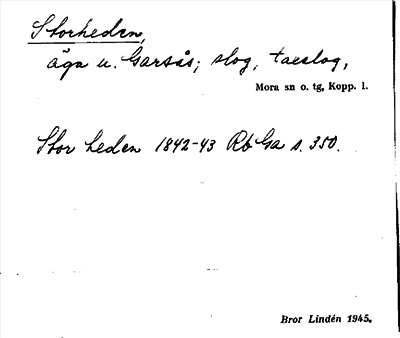 Storheden,
äga u. Garsås; slog,
Mora sn o. tg, Kopp. l.
Stor heden 1842-43 Rb Ga s. 350.
Bror Lindén 1945.